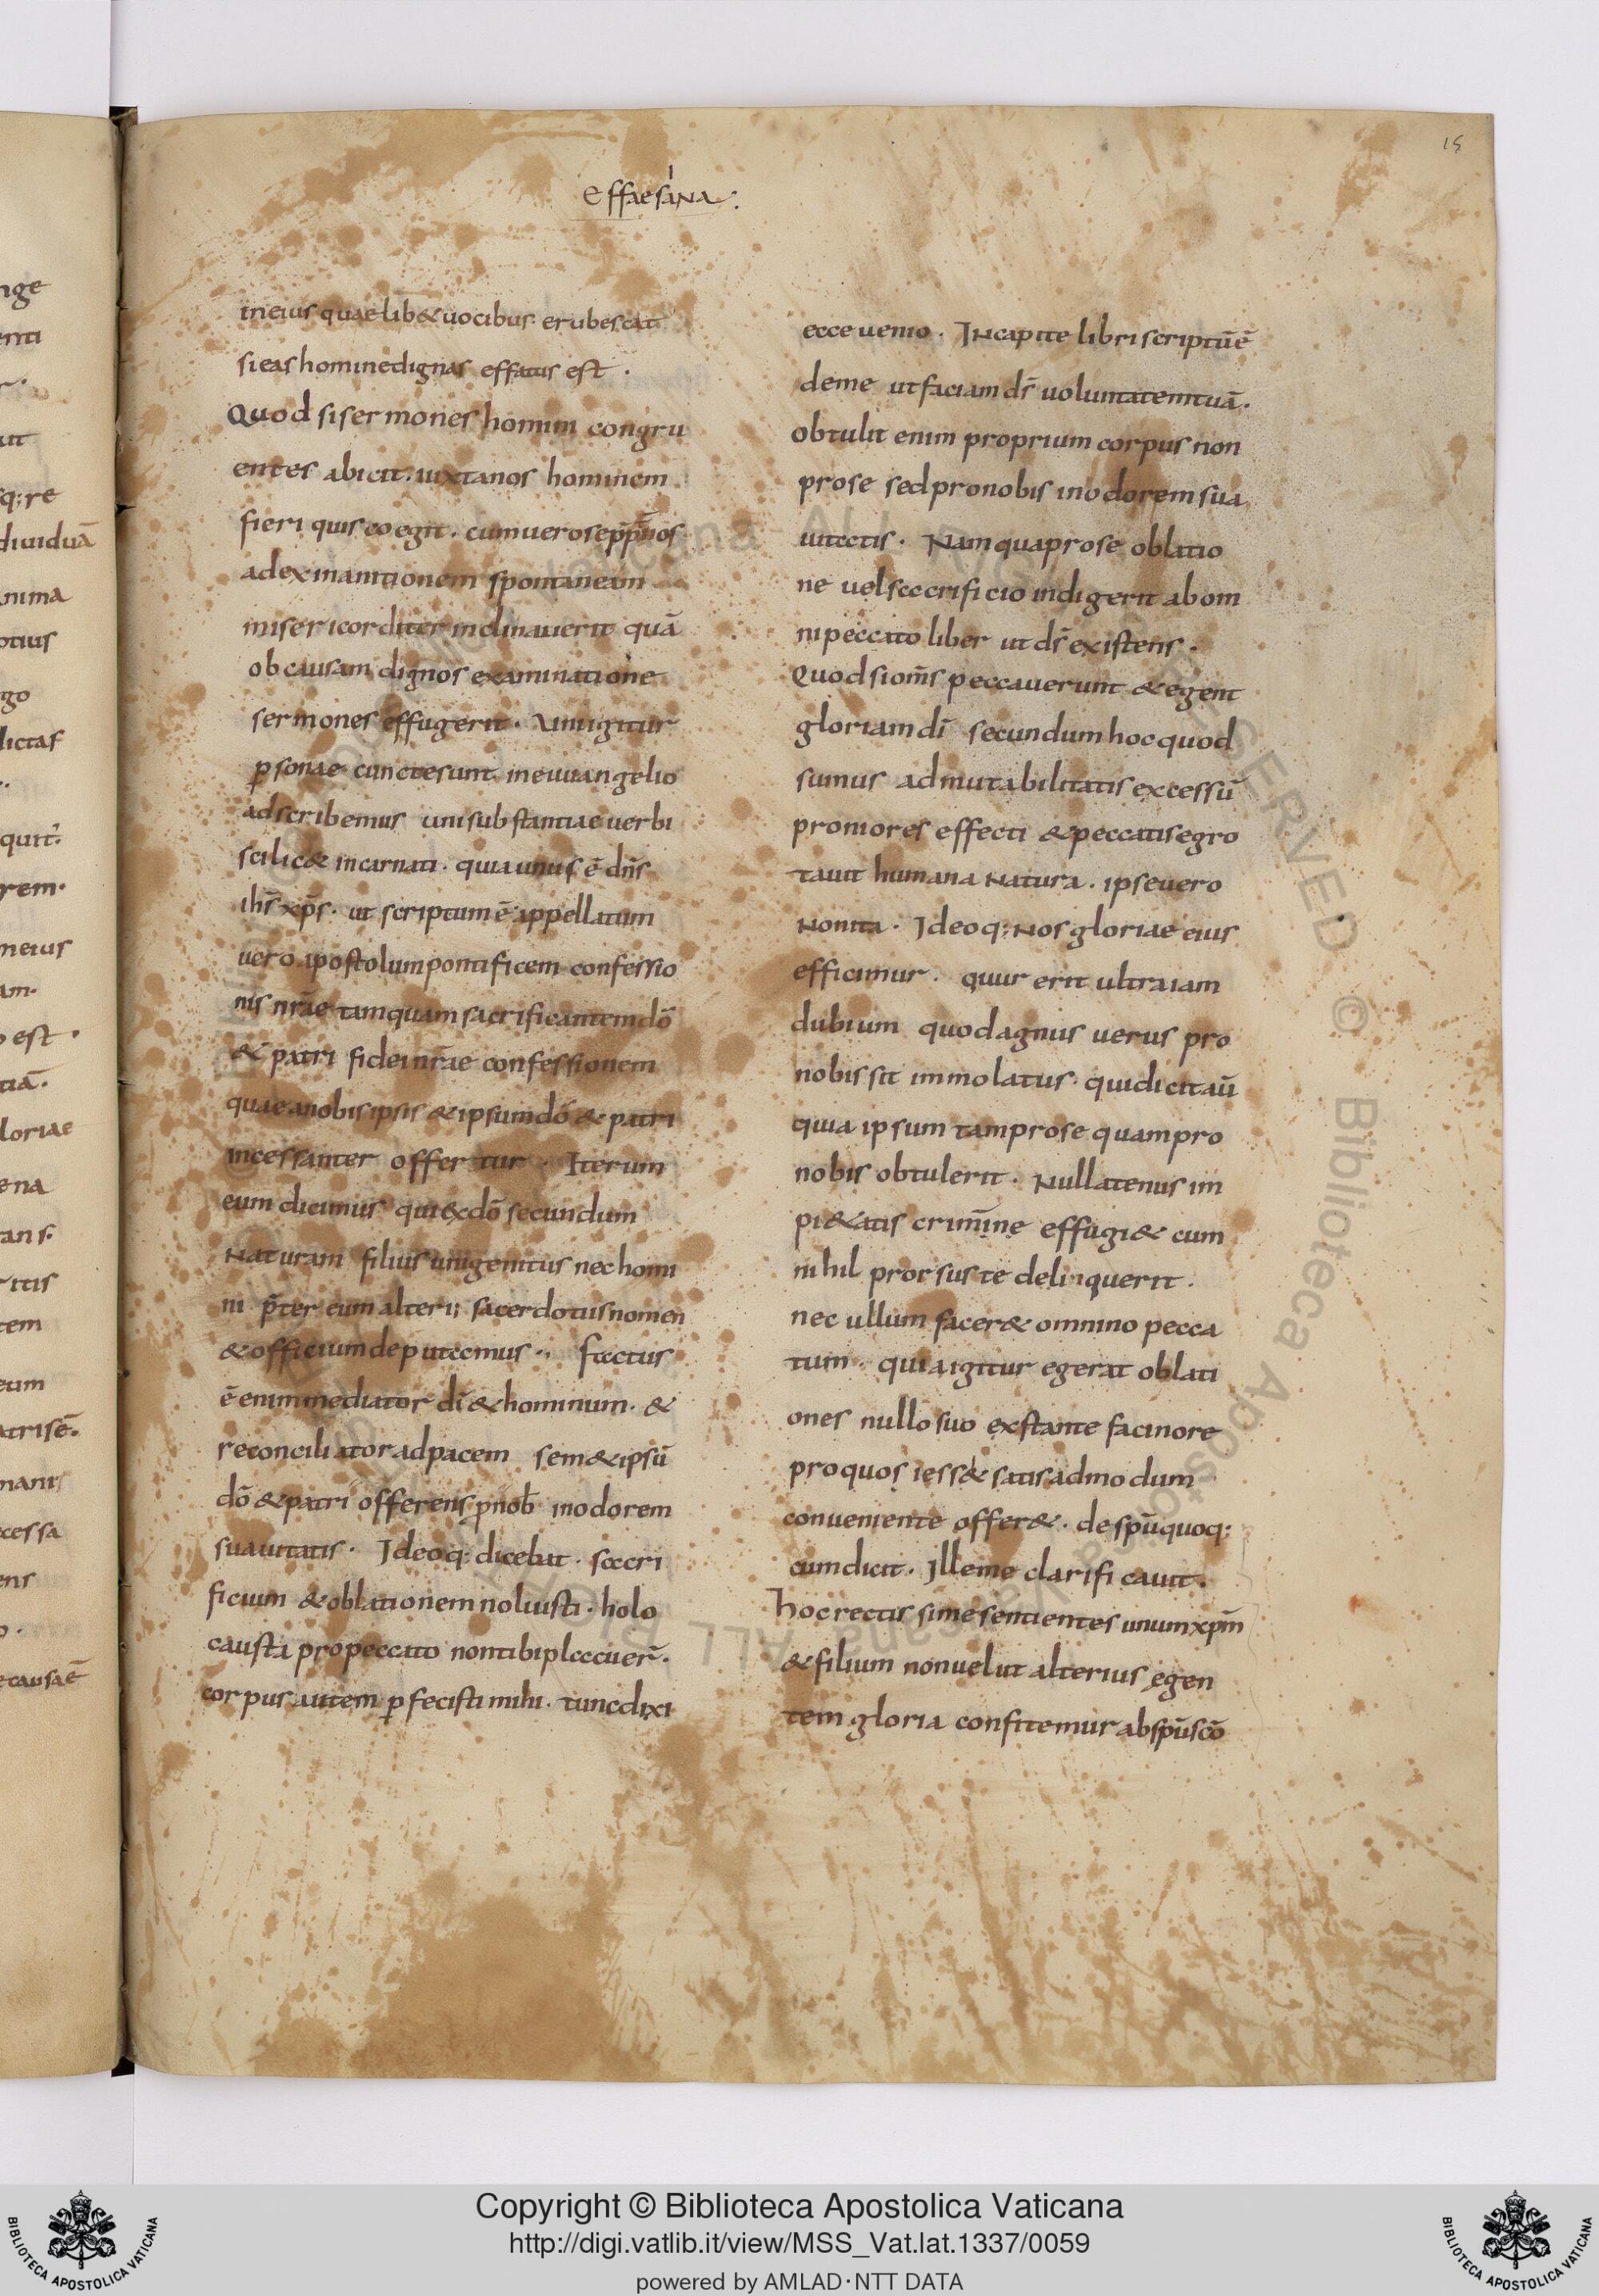 15
Effaesina.
ineius quaelib& uocibus erubescat
si eas homine dignas effatus est .
Quod si sermones homini congru
entes abicit. iuxta nos hominem
fieri quis coegit . cum uero se pp̄ nos
ad exinanitionem spontaneam
misericorditer inclinauerit quā
ob causam dignos examinatione
sermones effugerit . Uni igitur
p̱sonae cuncte sunt in euuangelio
adscribemus uni substantiae uerbi
scilic& incarnati . quia unus ē dn̄s
ihs̄ xp̄s . ut scriptum ē appellatum
uero apostolum pontificem confessio
nis nr̄ae tamquam sacrificantem dō
& patri fidei nr̄ae confessionem
quae a nobis ipsis & ipsum dō & patri
incessanter offertur . Iterum
eum dicimus qui ex dō secundum
Naturam filius unigenitus nec homi
ni p̄ter eum alteri; sacerdotus nomen
& officium deputecmus . fectus
ē enim mediator dī & hominum . &
reconciliator ad pacem sem& ipsū
dō & patri offerens p̱ nob̄ in odorem
suauitatis . Ideoq: dicebat . sacri
ficium & oblationem noluisti . holo
causta pro peccato non tibi placuer̄ .
corpus autem p̱fecisti mihi . tunc dixi
ecce uenio . In capite libri scriptū ē
de me ut faciam ds̄ uoluntatem tuā .
obtulit enim proprium corpus non
pro se sed pro nobis in odorem sua
uitatis . Nam qua pro se oblatio
ne uel sacrificio indigerit ab om
ni peccato liber ut ds̄ existens .
Quod si om̄s peccauerunt & egent
gloriam dī secundum hoc quod
sumus ad mutabilitatis excessū
proniores effecti & peccatis egro
tauit humana Natura . ipse uero
Non ita . Ideoq: Nos gloriae eius
efficimur . quur erit ultra iam
dubium quod agnus uerus pro
nobis sit immolatus . qui dicit aū
quia ipsum tam pro se quam pro
nobis obtulerit . Nullatenus im
pi&atis crimine effugi& cum
nihil prorsus te delinquerit .
nec ullum facer& omnino pecca
tum . quia igitur egerat oblati
ones nullo suo exstante facinore
pro quos iess& satis admodum
conueniente offer& . de spū quoq:
cum dicit . Ille me clarificauit .
hoc rectis sime sentientes unum xpm̄
& filium non uelut alterius egen
tem gloria confitemur ab spū scō
nge
ut
sq; re
diuiduā
otius
go
dictas
quit:
rem.
neius
am.
est .
tiā.
loriae
ena
ans.
itis
tem
atris ē.
cessa
ens
e causa ē
Copyright © Biblioteca Apostolica Vaticana
http://digi.vatlib.it/view/MSS_Vat.lat.1337/0059
powered by AMLAD·NTT DATA
BIBLIOTECA APOSTOLICA VATICANA
BIBLIOTECA APOSTOLICA VATICANA